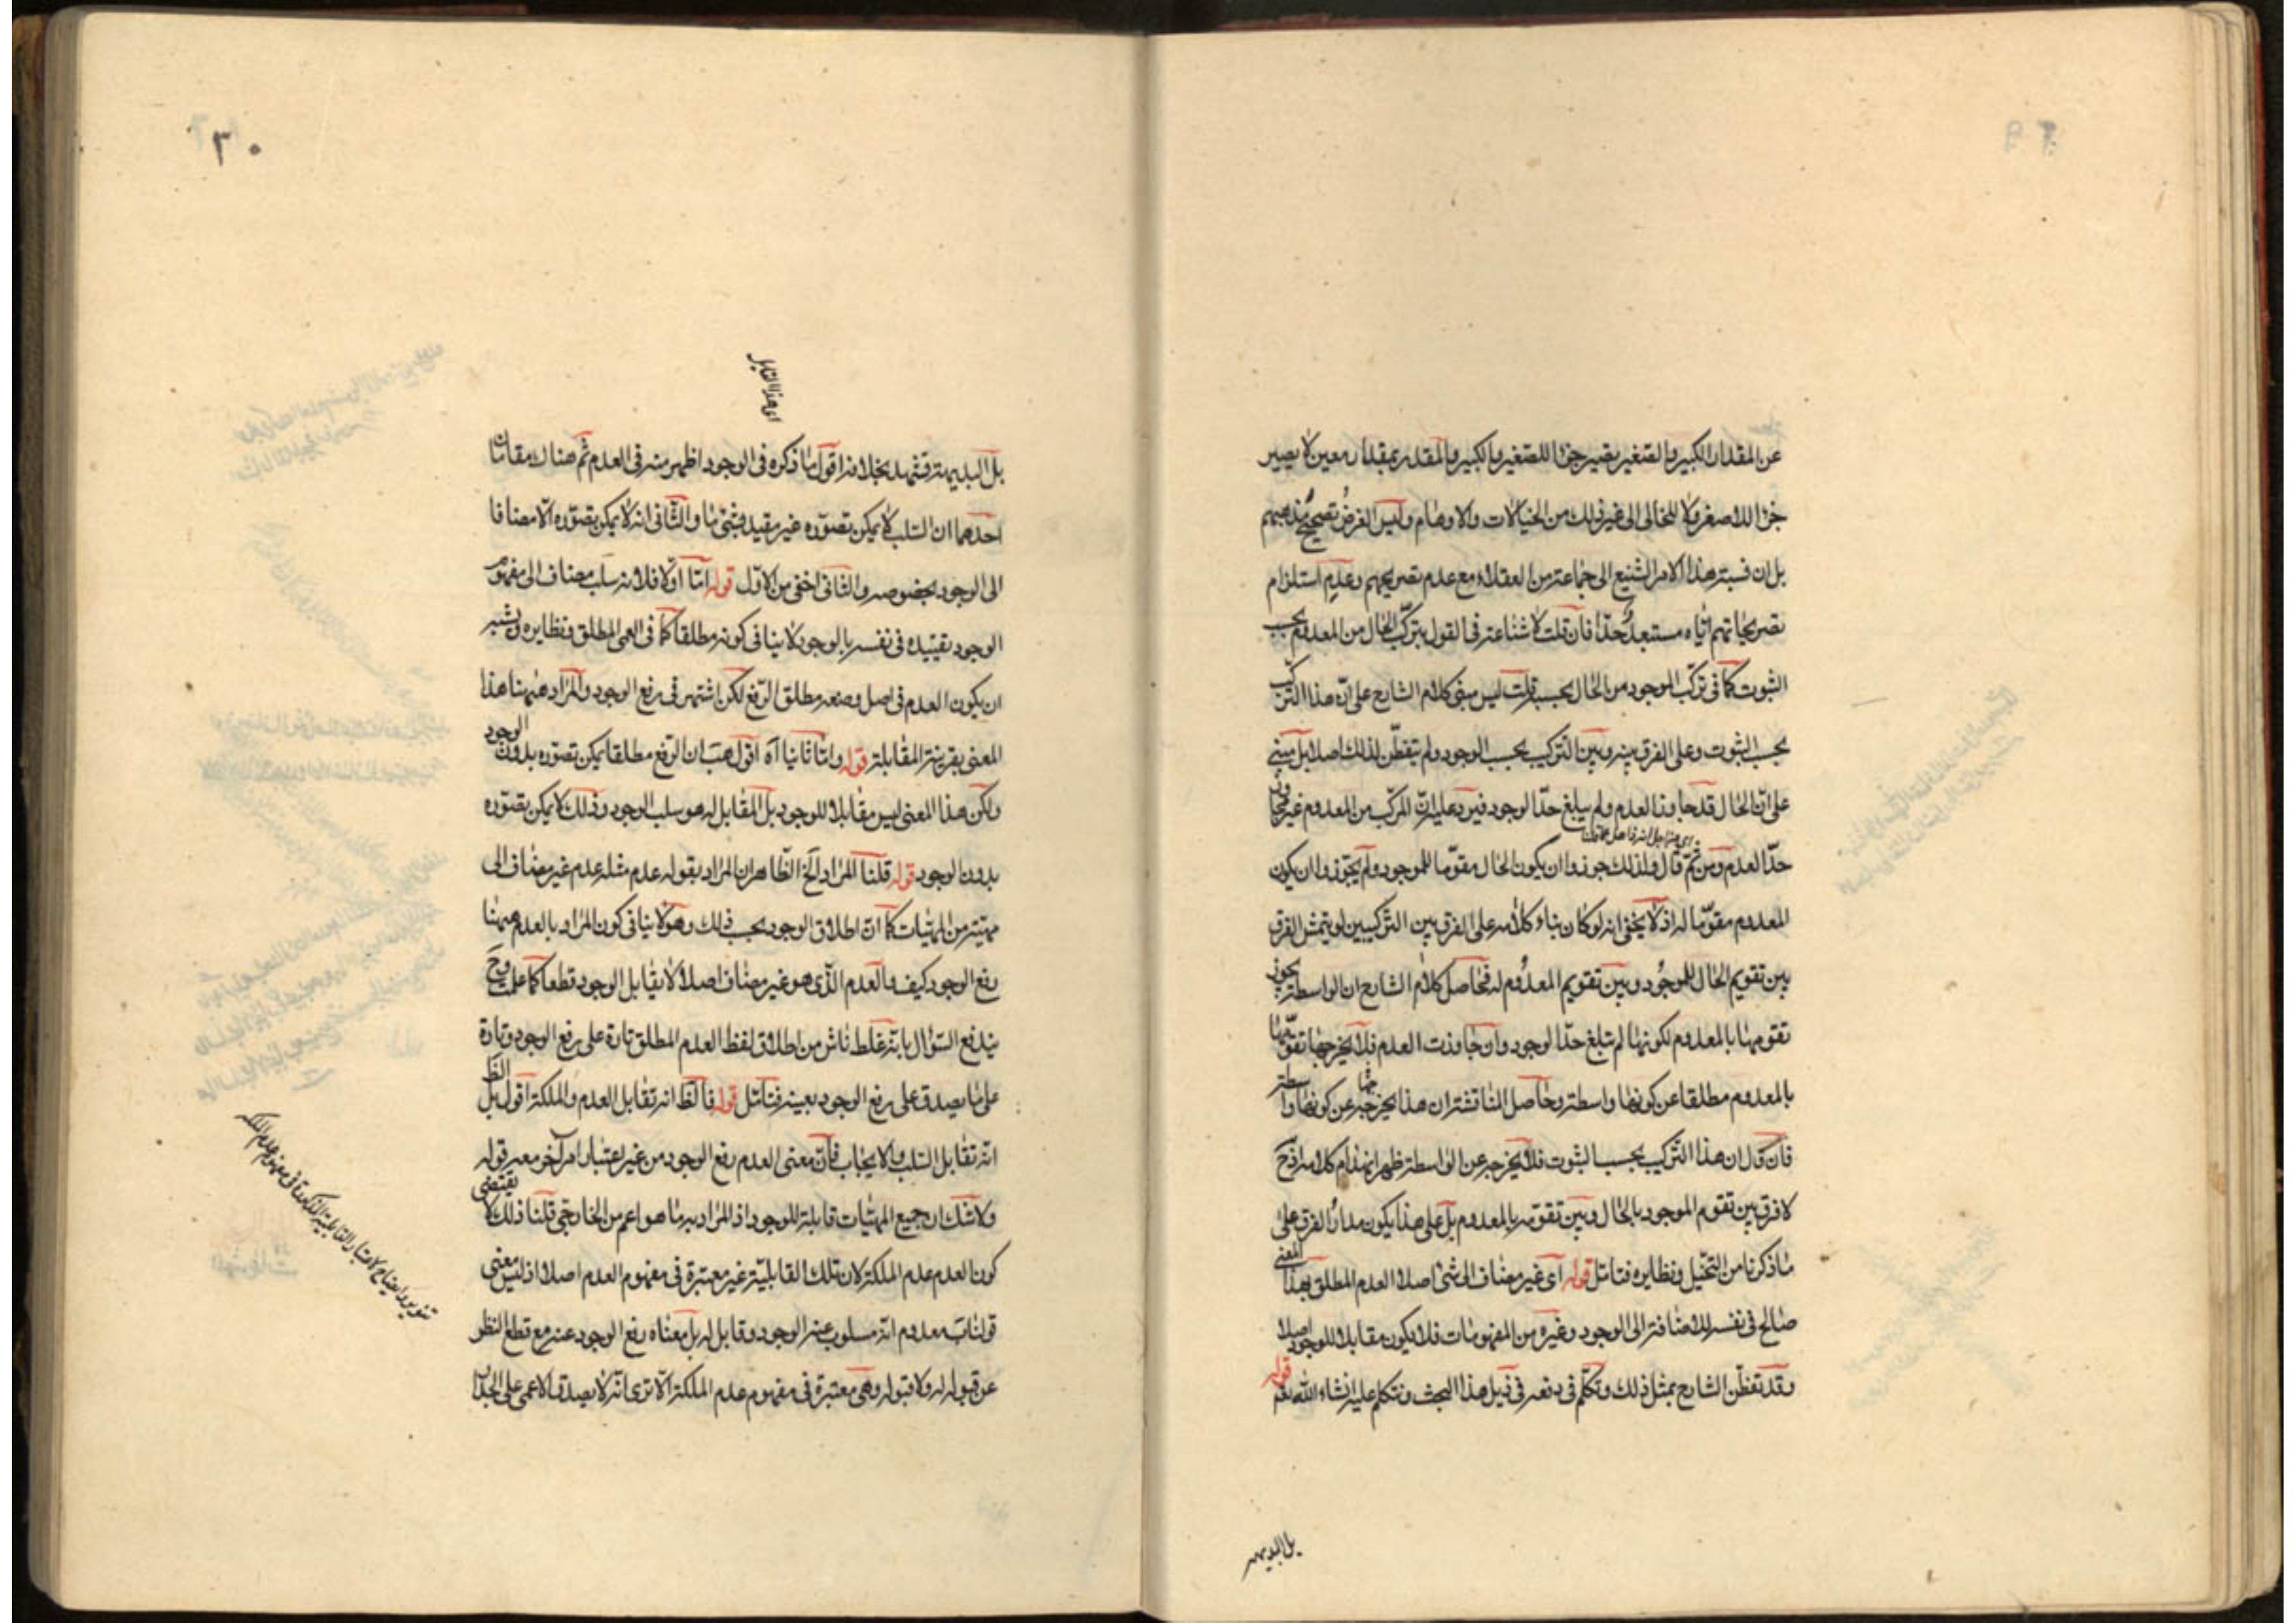 عن المقدار الكبير والصغير يصير جزءا للصغير والكبير والمقدر بمقدار معين لا يصير
جزءا للاصغر ولا للخالى الى غير ذلك من الخيالات والاوهام وليس الغرض تصحيح مذهبهم
بل ان نسبة هذا الامر الشنيع الى جماعة من العقلاء مع عدم تصريحهم وعدم استلزام
تصريحاتهم اياه مستبعد جدا فان قلت لا شناعة فى القول بتركب الحال من المعدوم بحسب
الثبوت كما فى تركب الموجود من الحال بحسبه قلت ليس مبنى كلام الشارح على ان هذا التركب
بحسب الثبوت وعلى الفرق بينه وبين التركيب بحسب الوجود ولم يتفطن لذلك اصلا بل مبنى
على ان الحال قد جاوز العدم ولم يبلغ حد الوجود فيرد عليه ان المركب من المعدوم غير مجاوز
حد العدم ومن ثم قال ولذلك جوزوا ان يكون الحال مقوما للموجود ولم يجوزوا ان يكون
المعدوم مقوما له اذ لا يخفى انه لو كان بناء كلامه على الفرق بين التركيبين لم يتمش الفرق
بين تقويم الحال للموجود وبين تقويم المعدوم له فحاصل كلام الشارح ان الواسطة يجوز
تقومها بالمعدوم لكونها لم تبلغ حد الوجود وان جاوزت العدم فلا يخرجها تقومها
بالمعدوم مطلقا عن كونها واسطة وحاصل المناقشة ان هذا يخرجها عن كونها واسطة
فان قال ان هذا التركيب بحسب الثبوت فلا يخرجه عن الواسطة ظهر انهدام كلامه اذ ح
لا فرق بين تقوم الموجود بالحال وبين تقومه بالمعدوم بل على هذا يكون مدار الفرق على
ما ذكرنا من التخيل ونظايره فتامل قوله اى غير مضاف الى شئ اصلا العدم المطلق بهذا المعنى
صالح فى نفسه للاضافة الى الوجود وغيره من المفهومات فلا يكون مقابلا للوجود اصلا
وقد تفطن الشارح بمثل ذلك وتكلم فى دفعه فى ذيل هذا البحث ونتكلم عليه انشاء الله تعم قوله
بل البديهة
٣٠
اى هذا التقابل
بل البديهة تشهد بخلافه اقول ما ذكره فى الوجود اظهر منه فى العدم ثم هناك مقامان
احدهما ان السلب لا يمكن تصوره غير مقيد بشئ ما والثانى انه لا يمكن تصوره الا مضافا
الى الوجود بخصوصه والثانى اخفى من الاول قوله اما اولا فلانه سلب مضاف الى مفهوم
الوجود تقييده فى نفسه بالوجود لا ينافى كونه مطلقا كما فى العمى المطلق ونظايره ويشبه
ان يكون العدم فى اصل وضعه مطلق الرفع لكن اشتهر فى رفع الوجود والمراد ههنا هذا
المعنى بقرينة المقابلة قوله واما ثانيا آه اقول هب ان الرفع مطلقا يمكن تصوره بدون الوجود
ولكن هذا المعنى ليس مقابلا للوجود بل المقابل له هو سلب الوجود وذلك لا يمكن تصوره
بدون الوجود قوله قلنا المراد الخ الظاهر ان المراد بقوله عدم مثله عدم غير مضاف الى
مهية من المهيات كما ان اطلاق الوجود بحسب ذلك وهو لا ينافى كون المراد بالعدم ههنا
رفع الوجود كيف والعدم الذى هو غير مضاف اصلا لا يقابل الوجود قطعا كما علمت وح
يندفع السؤال بانه غلط ناش من اطلاق لفظ العدم المطلق تارة على رفع الوجود وتارة
على ما يصدق على رفع الوجود بعينه فتامل قوله فالظ انه تقابل العدم والملكة اقول بل الظ
انه تقابل السلب والايجاب فان معنى العدم رفع الوجود من غير اعتبار امر آخر معه قوله
ولا شك ان جميع المهيات قابلة للوجود اذ المراد به ما هو اعم من الخارجى قلنا ذلك لا يقتضى
كون العدم عدم الملكة لان تلك القابلية غير معتبرة فى مفهوم العدم اصلا اذ ليس معنى
قولنا ب معدوم انه مسلوب عنه الوجود وقابل له بل معناه رفع الوجود عنه مع قطع النظر
عن قبوله له ولا قبوله وهى معتبرة فى مفهوم عدم الملكة الا ترى انه لا يصدق الاعمى على الجدار